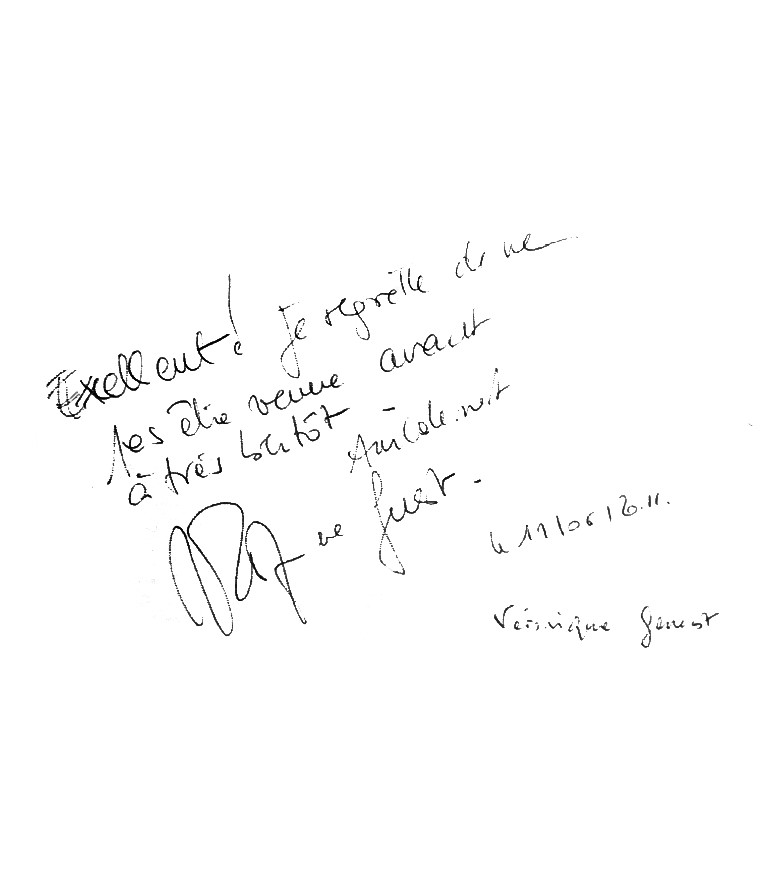 Exellent! Je regrette de ne
pas être venue avant
à très bientôt Amicalement
Genest.
le 11/06/2011.
Véronique Genest